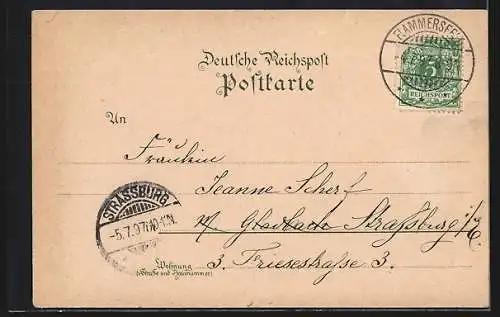 FLAMMERSFELD
5
REICHSPOST
Deutsche Reichspost
Postkarte
An
Fräulein
Jeanne Scherf
M Gladbach Straßburg i/E.
STRASSBURG
-5.7.97
3. Friesestraße 3.
Wohnung
(Straße und Hausnummer)